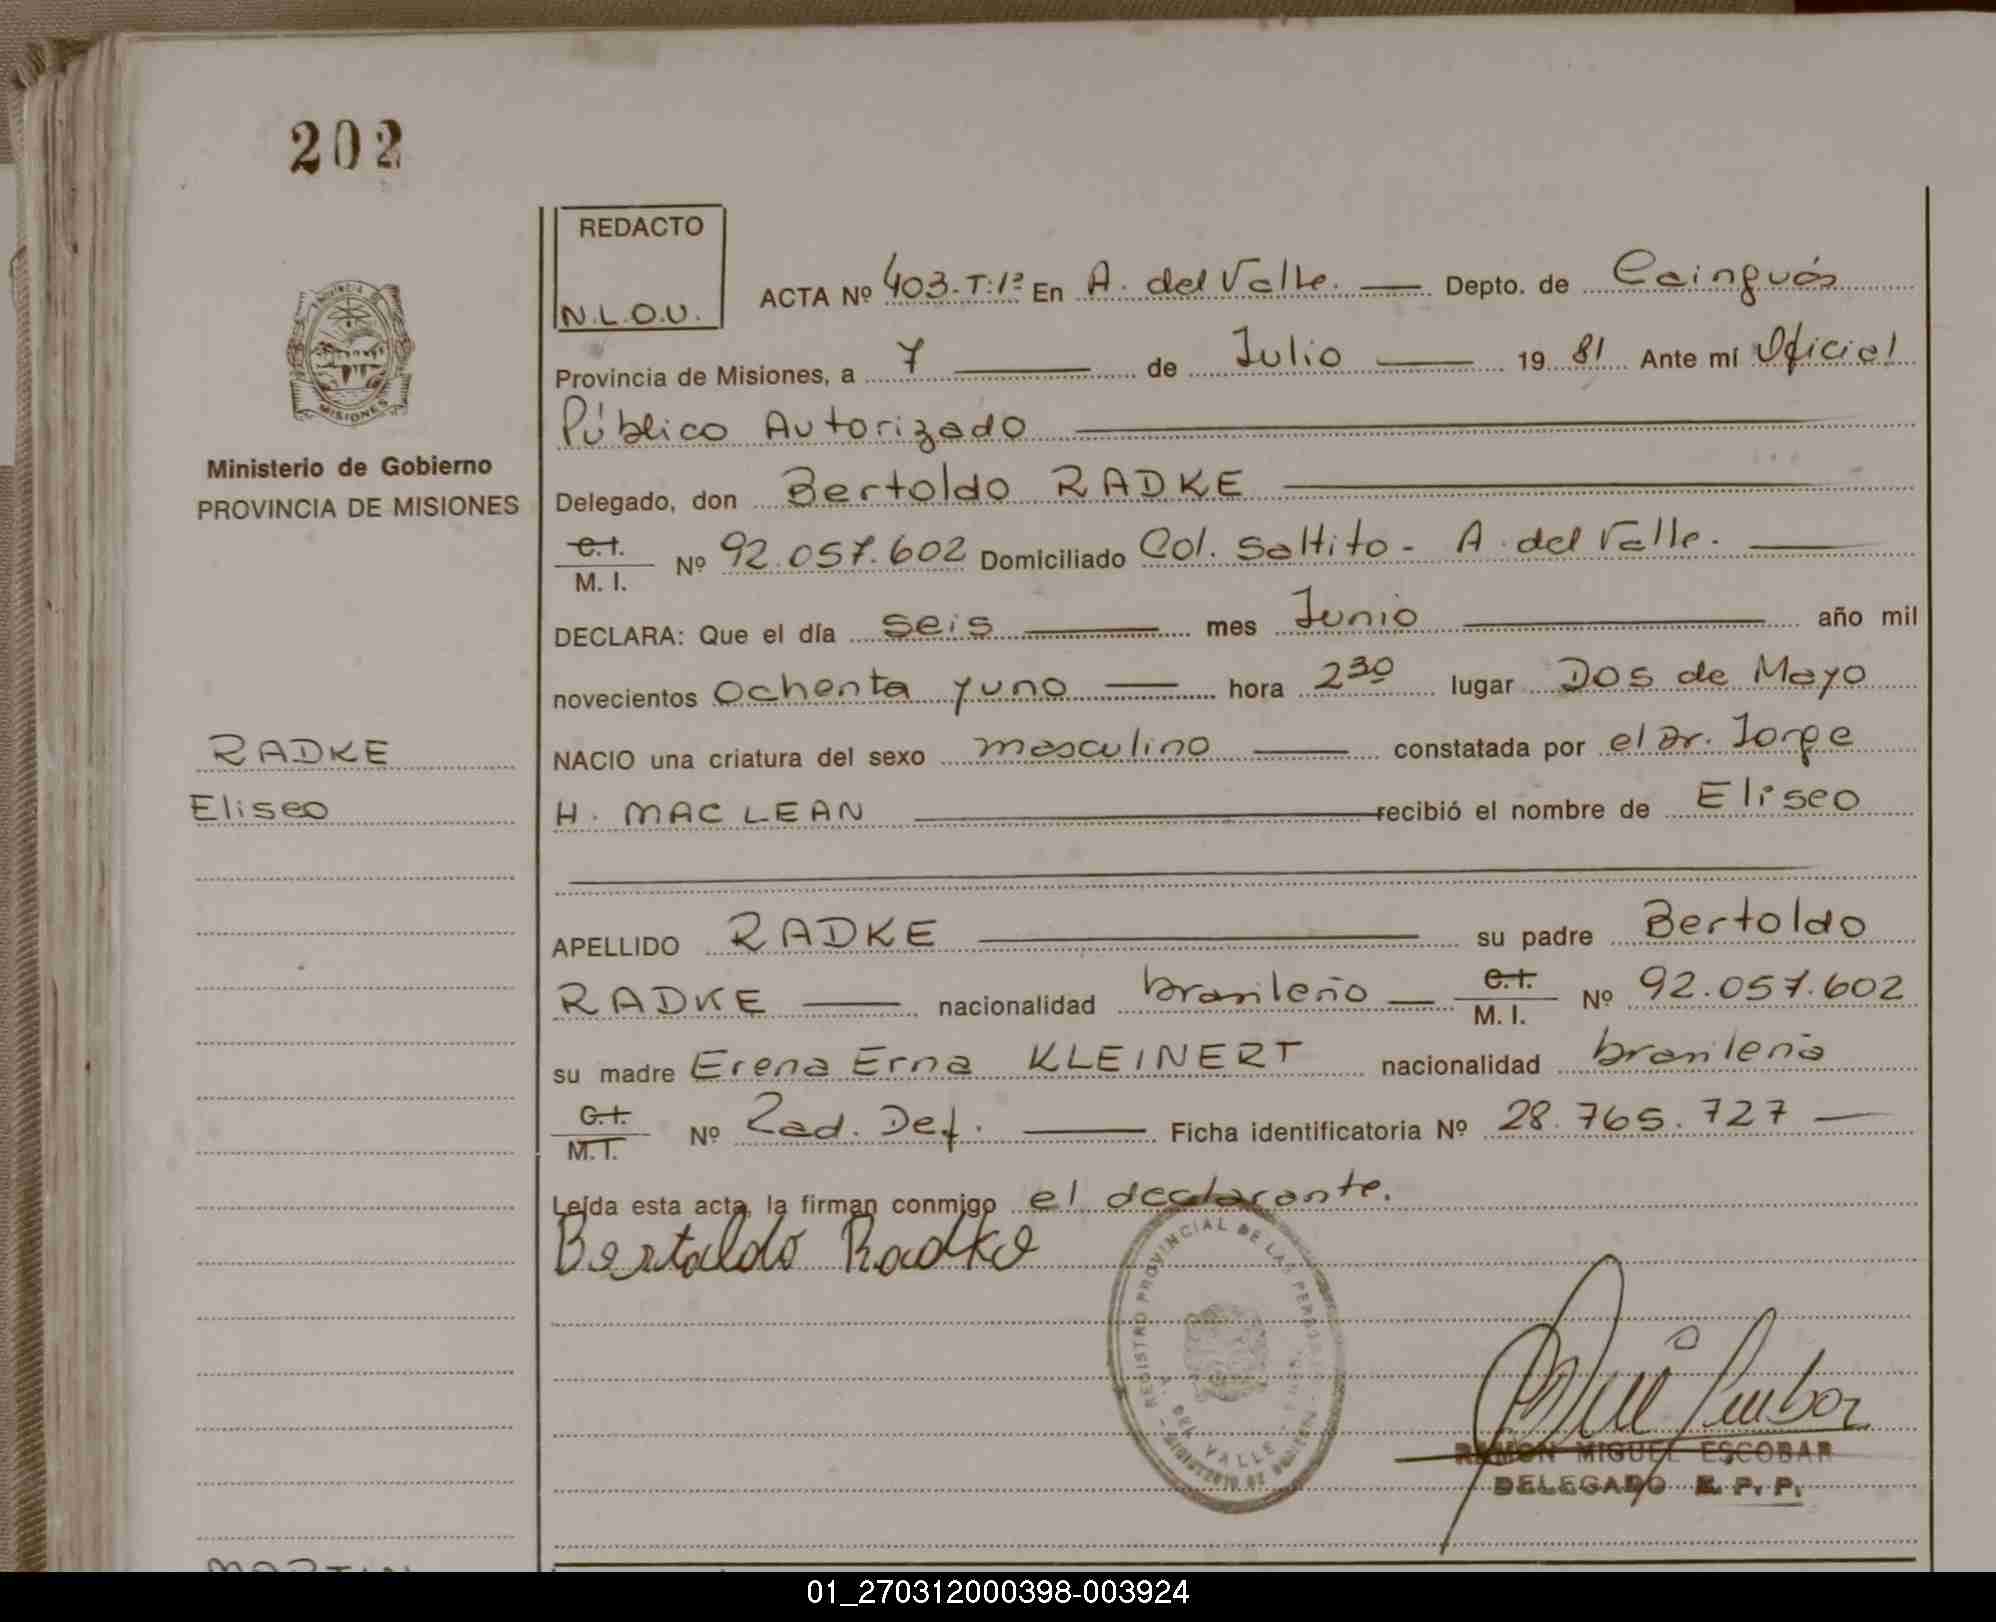 202
REDACTO
N.L.O.U.
ACTA Nº 403-T:1º En A. del Valle. Depto. de Cainguás
Provincia de Misiones, a 7 de Julio 1981 Ante mí Oficial
Público Autorizado
MISIONES
Ministerio de Gobierno
PROVINCIA DE MISIONES
Delegado, don Bertoldo RADKE
C.I. M.I. Nº 92.057.602 Domiciliado Col. Saltito - A. del Valle.
DECLARA: Que el día seis mes Junio año mil
novecientos ochenta y uno hora 2 30 lugar Dos de Mayo
RADKE
Eliseo
NACIO una criatura del sexo masculino constatada por el Dr. Jorge
H. MAC LEAN recibió el nombre de Eliseo
APELLIDO RADKE su padre Bertoldo
RADKE nacionalidad brasileño C.I. M.I. Nº 92.057.602
su madre Erena Erna KLEINERT nacionalidad brasileña
C.I. M.I. Nº Rad. Def. Ficha identificatoria Nº 28.765.727
Leída esta acta, la firman conmigo el declarante.
Bertoldo Radke
REGISTRO PROVINCIAL DE LAS PERSONAS
A. DEL VALLE
RAMON MIGUEL ESCOBAR
DELEGADO R. P. P.
MARTIN
01_270312000398-003924